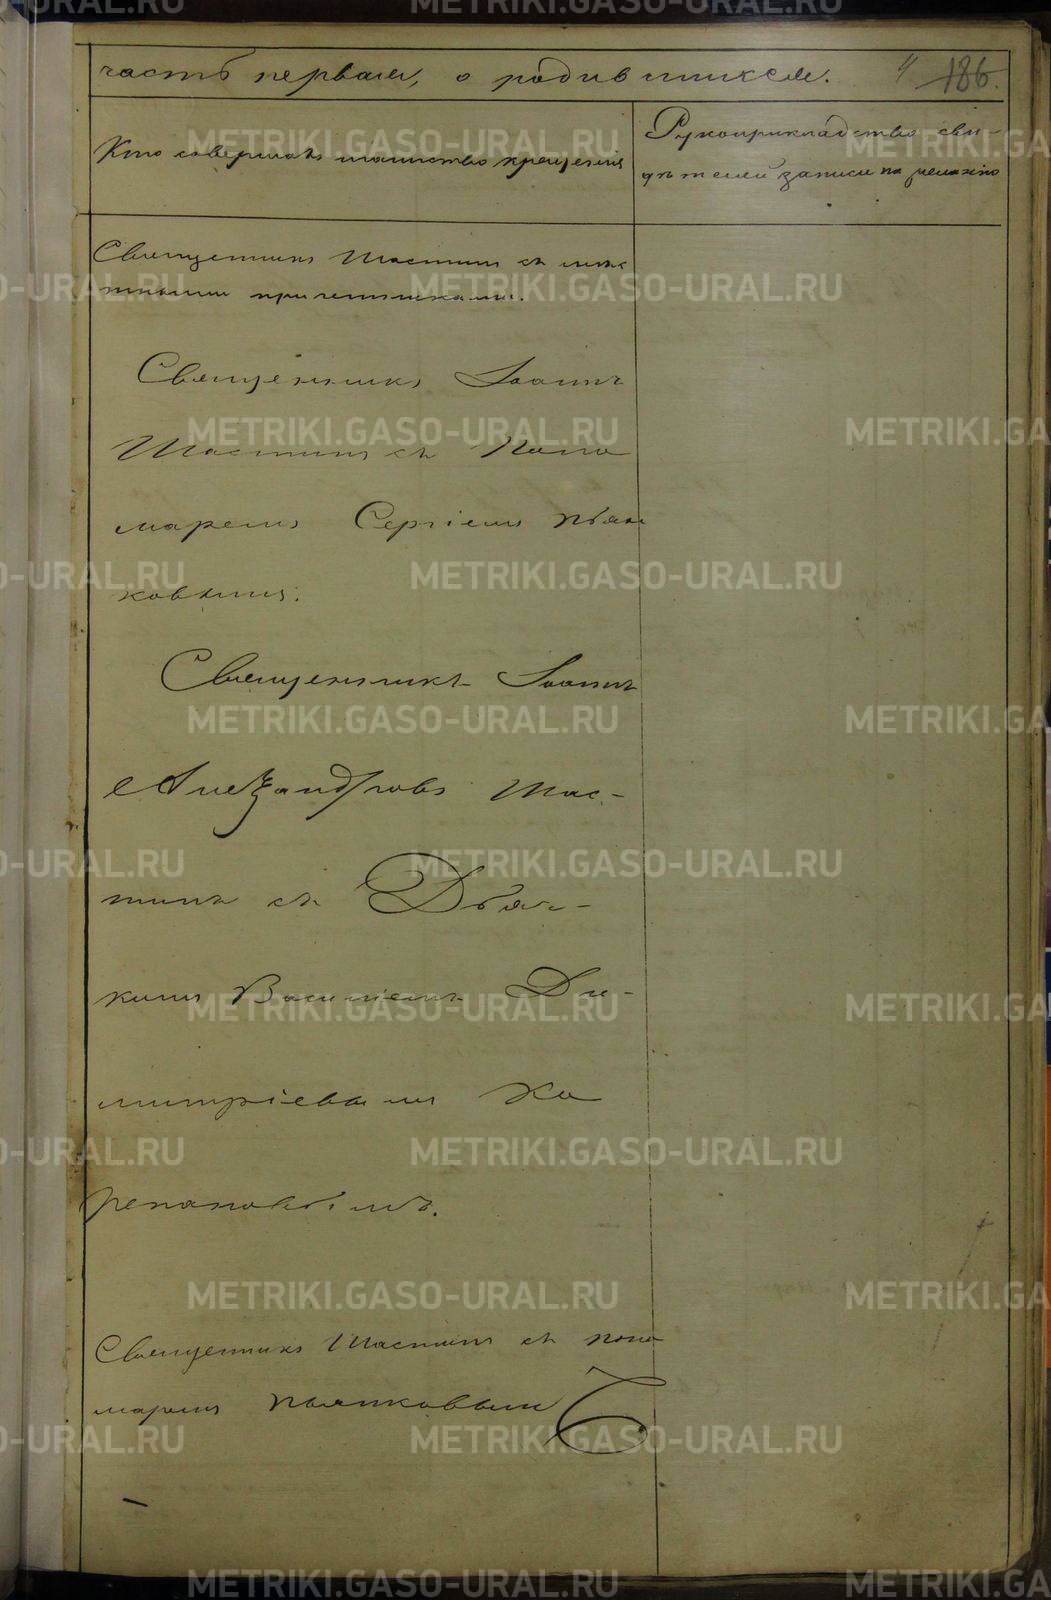 часть первая, о родившихся. 4 186.
Кто совершалъ таинство крещенія
Рукоприкладство сви-
дѣтелей записи по желанію
Священникъ Шастинъ съ мѣс
тными причетниками.
Священникъ Іоаннъ
Шастинъ съ Поно
маремъ Сергіемъ Пьян
ковымъ.
Священникъ Іоаннъ
Александровъ Шас-
тинъ съ Дьяч-
комъ Василіемъ Ди-
митріевымъ Ка
репановымъ.
Священникъ Шастинъ съ поно
маремъ Пьянковымъ
METRIKI.GASO-URAL.RU